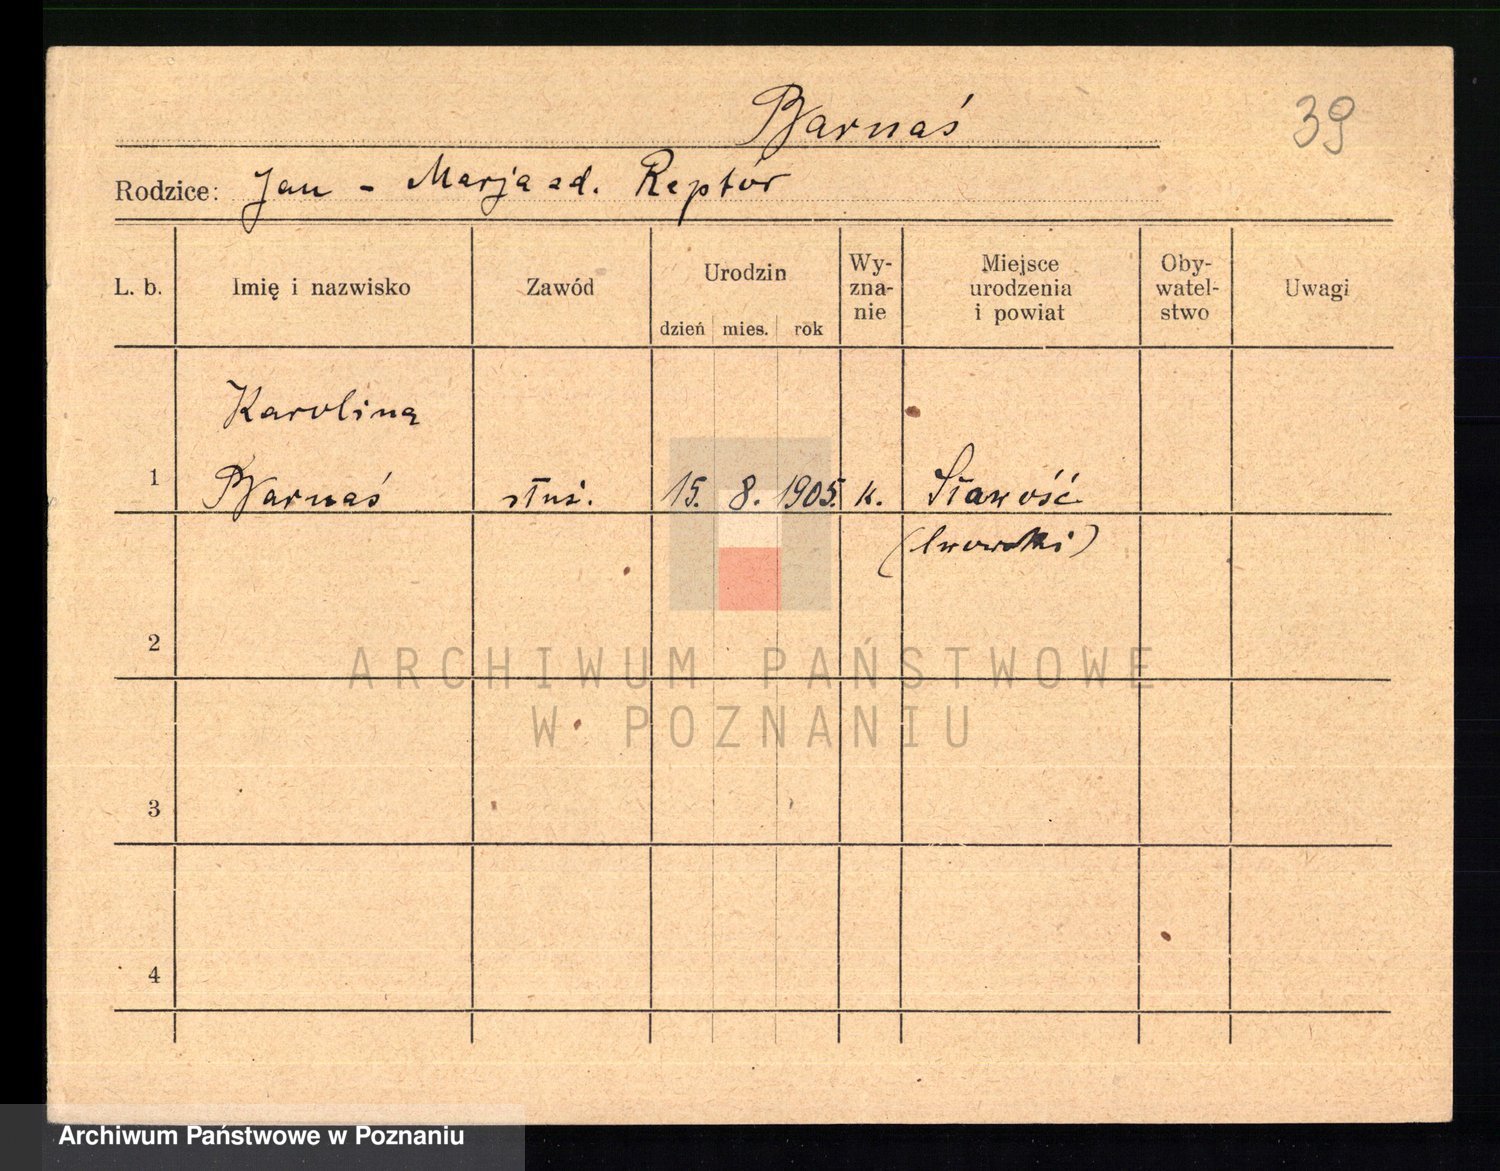 Barnaś
39
Rodzice: Jan - Marja zd. Reptór
L. b. Imię i nazwisko Zawód Urodzin dzień mies. rok Wy-zna-nie Miejsce urodzenia i powiat Oby-watel-stwo Uwagi
Karolina
1 Barnaś służ. 15. 8. 1905. k. Stawość
(lwowski)
2
3
4
ARCHIWUM PAŃSTWOWE
W POZNANIU
Archiwum Państwowe w Poznaniu